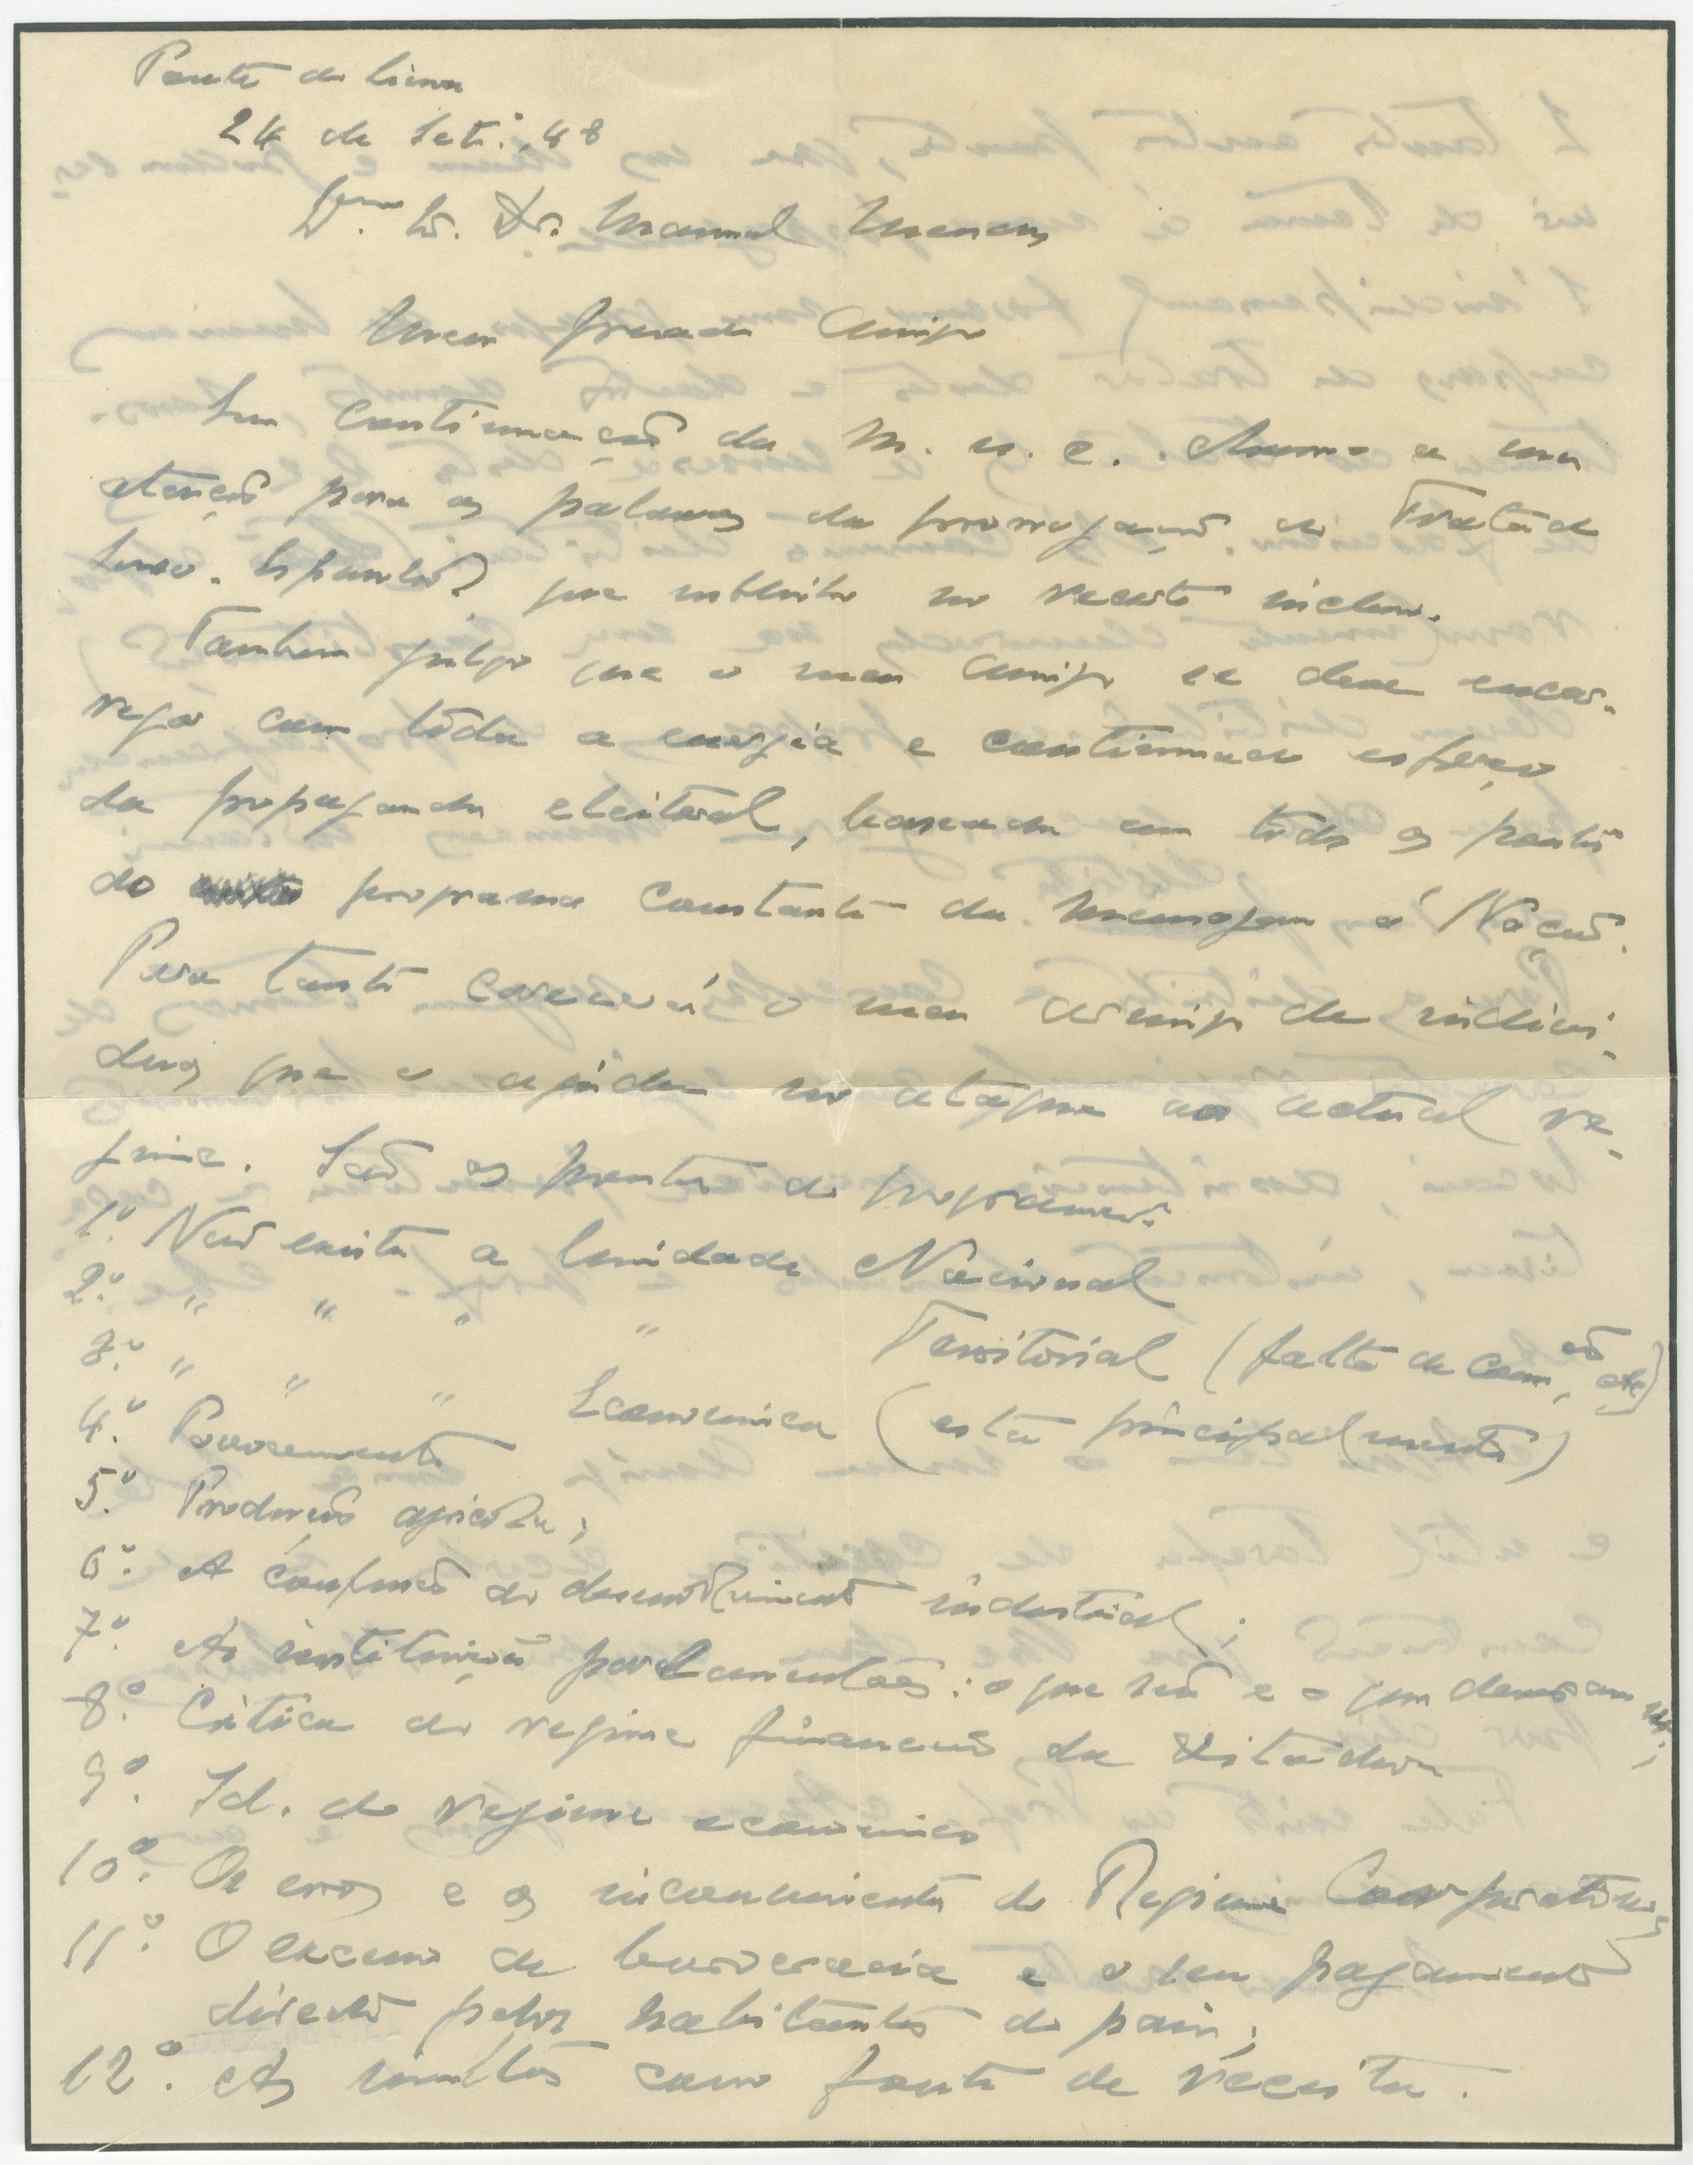 Ponte do Lima
24 de Setº. 48
Exmo Sr. Dr. Manuel Menezes
Meu Prezado Amigo
Em continuação da m. n. c. chamo a sua
atenção para as palavras da prorrogação do Tratado
Luso-Espanhol que sublinho no recorte incluso.
Tambem julgo que o meu amigo se deve encar-
regar com tôda a energia e continuado esforço
da propaganda eleitoral, baseada em todos os pontos
do programa constante da mensagem á Nação.
Para tanto carecerá o meu amigo de indivi-
duos que o ajudem no ataque ao actual re-
gime. São os pontos do programa:
1.º Não existe a Unidade Nacional
2.º " " " " Territorial (falta de com.ão etc)
3.º " " " Economica (esta principalmente)
4.º Povoamento
5.º Produção agricola;
6.º A confusão do desenvolvimento industrial;
7.º As instituições parlamentares: o que são e o que deveriam ser;
8.º Critica do regime financeiro da Ditadura
9.º Id. do regime economico
10.º Os erros e os inconvenientes do Regime Corporativo;
11.º O excesso de burocracia e o seu pagamento
directo pelos habitantes do pais;
12.º As multas como fonte de receita.